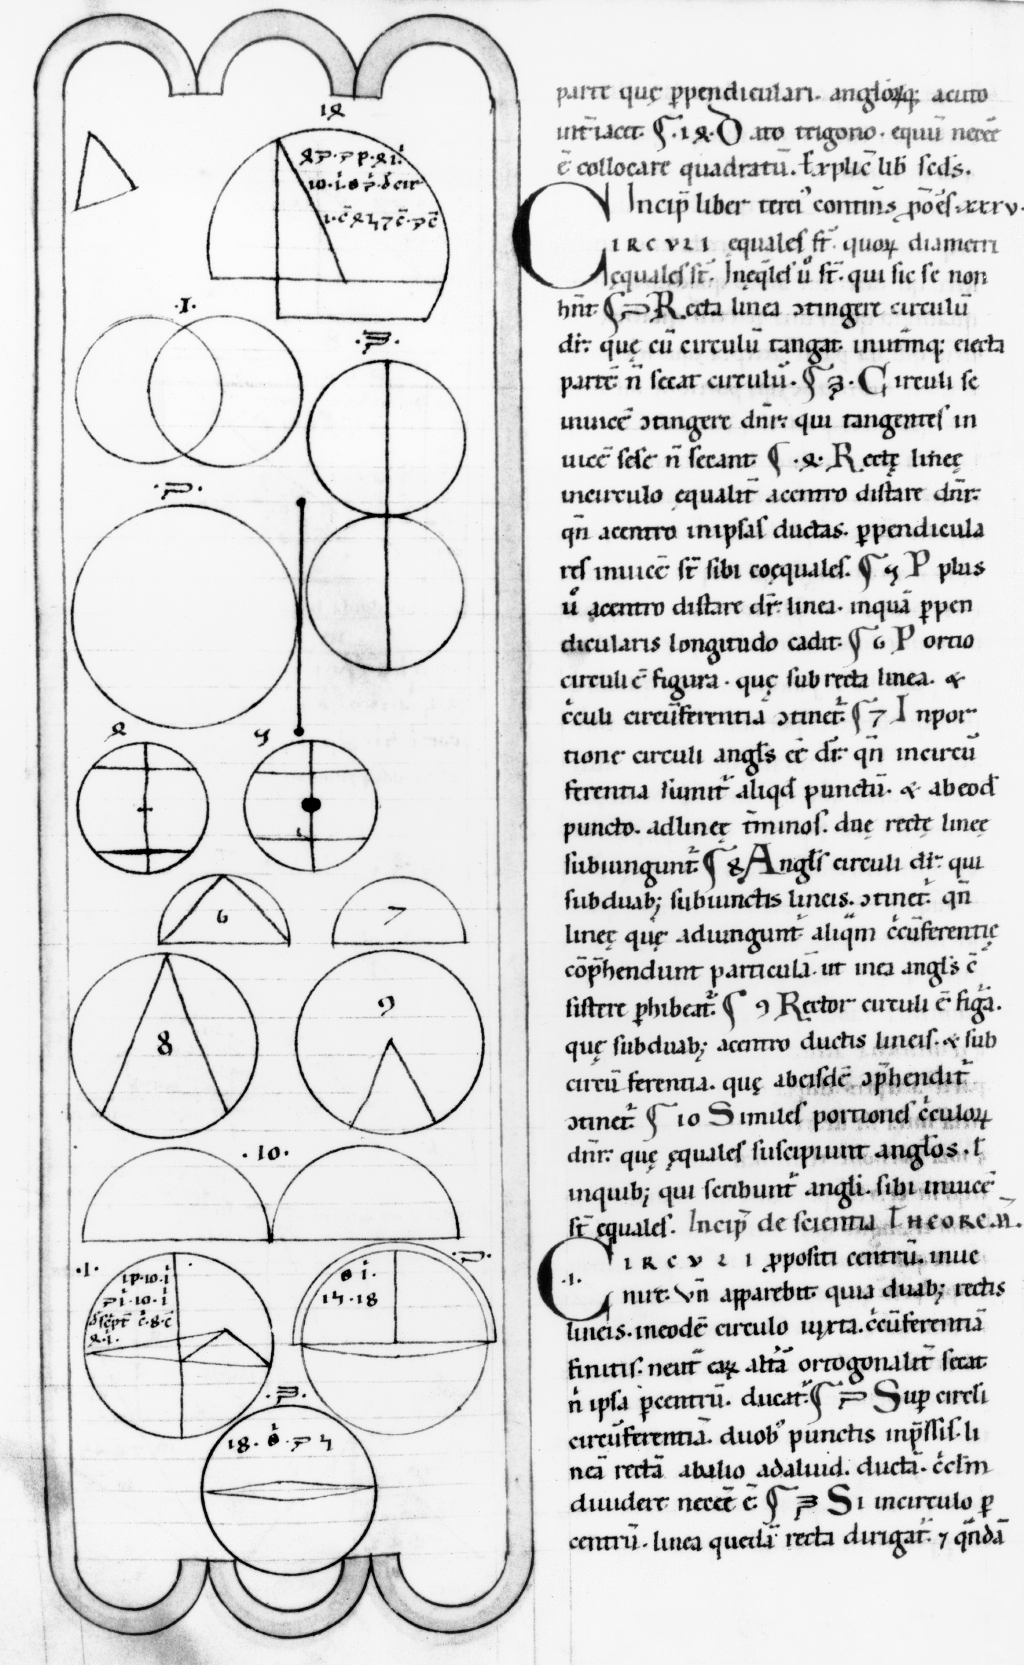 parte quę ꝑpendiculari. angloꝝqꝫ acuto
int̄iacet ¶ .14. Dato trigono. equū necēē
ē collocare quadratū. Explic̄ lib̄ scds.
Incip̄ liber terci' continēs ꝓōēs .xxxv.
CIRCULI equales st̄. quoꝝ diametri
ęquales st̄. Ineq̄les ů st̄. qui sic se non
hn̄t. ¶ 2 Recta linea ↄtingere circulū
dr̄. quę cū circulū tangat. inutrimqꝫ eiecta
parte n̄ secat circulū. ¶ 3. Circuli se
inuicē ↄtingere dn̄r. qui tangentes in
uicē sese n̄ secant. ¶ .4. Rectę lineę
incirculo equalit̄ acentro distare dn̄r.
qn̄ acentro inipsas ductas. ꝑpendicula
res inuicē st̄ sibi coęquales. ¶ 5 P plus
ů acentro distare dr̄. linea. inquā ꝑpen
dicularis longitudo cadit. ¶ 6 Portio
circuli ē figura. quę sub recta linea. &
c̄culi circūferentia ↄtinet̄. ¶ 7 Inpor
tione circuli angl̄s eē dr̄. qn̄ incircū
ferentia sumit̄ aliqd̄ punctū. & abeod̄
puncto. adlineę t̄minos. duę rectę lineę
subiungunt̄ ¶ 8 Angl̄s circuli dr̄. qui
subduabꝫ subiunctis lineis. ↄtinet̄. qn̄
lineę quę adiungunt̄ aliq̄m c̄cūferentię
cōp̄hendunt particulā. ut inea angl̄s c̄
sistere ꝑhibeat̄. ¶ 9 Rector circuli ē fiḡa.
quę subduabꝫ acentro ductis lineis. & sub
circū ferentia. quę abeisdē ↄp̄hendit̄
ↄtinet̄. ¶ 10 Similes portiones c̄culoꝝ
dn̄r. quę ęquales suscipiunt anglos. ł
inquibꝫ qui scribunt̄ angli. sibi inuicē
st̄ ęquales. Incip̄ de scientia THEOREM̄.
.1. CIRCULI ꝓpositi centrū. inue
nire. Vn̄ apparebit quia duabꝫ rectis
lineis. ineodē circulo iuxta. c̄cūferentiā
finitis. neut̄ eaꝝ alt̄ā ortogonalit̄ secat
n̄ ipsa ꝑcentrū. ducat̄. ¶ 2 Sup circli
circūferentiā. duobꝰ punctis inp̄ssis. li
neā rectā abalio adaliud. ductā. c̄clm
diuidere necēē ē. ¶ 3 Si incirculo ꝑ
centrū. linea quedā recta dirigat̄. 7 qn̄dā
14
.1.
.3.
.2.
4
5
6
7
8
9
.10.
.1.
.2.
.3.